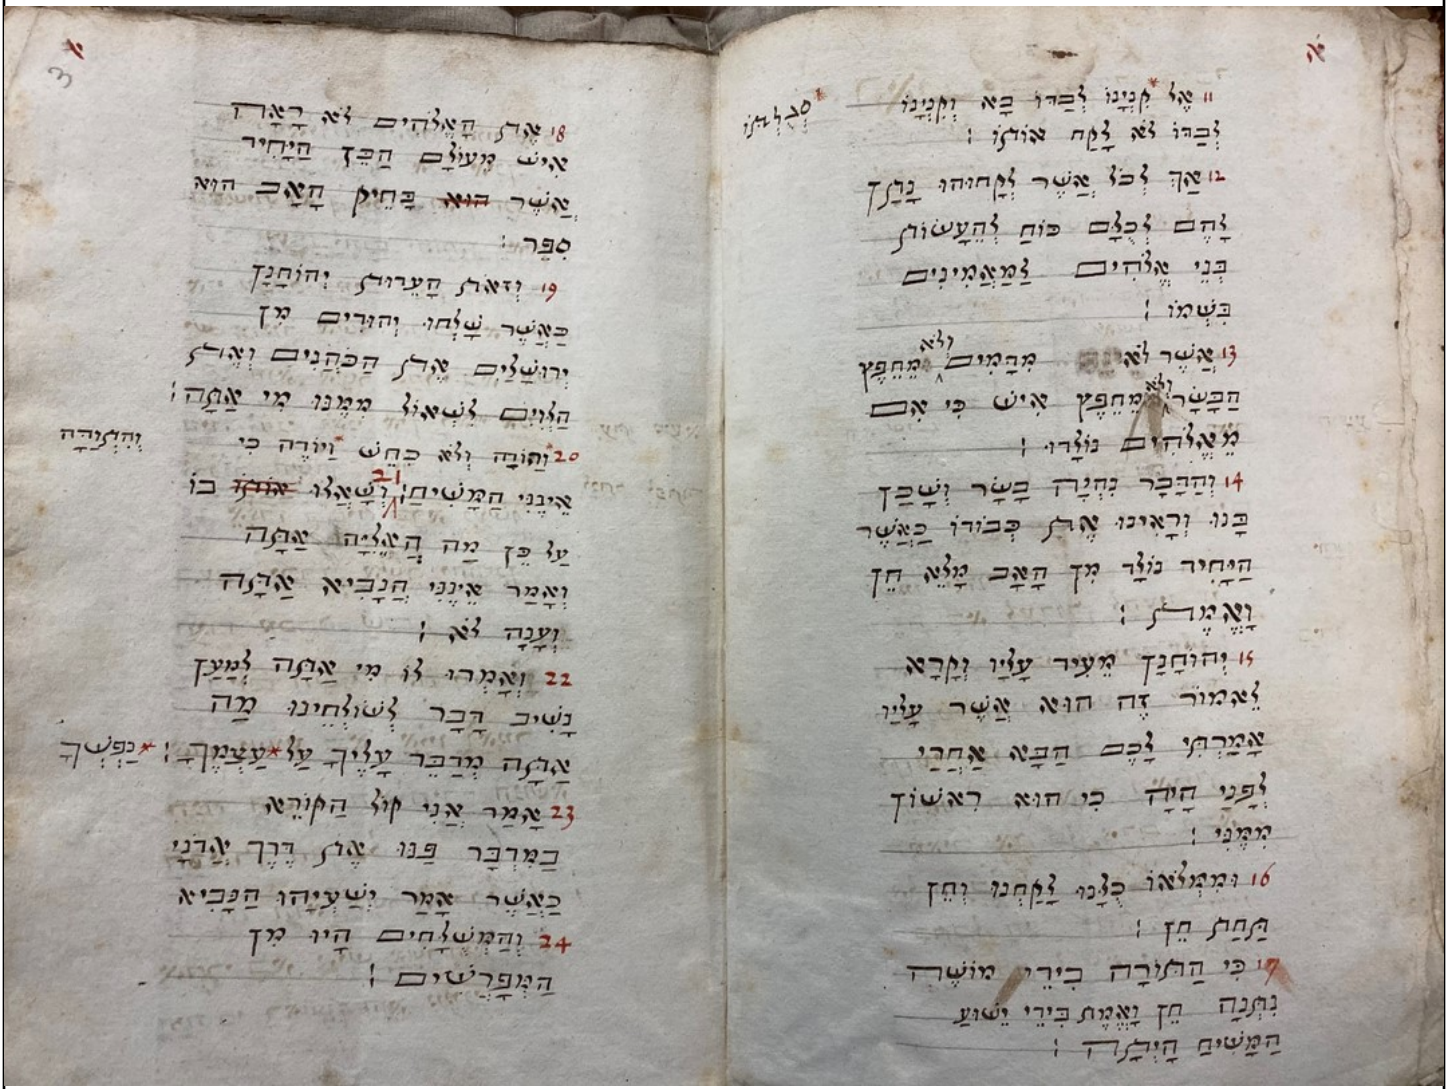 א
11 אֶל קִנְיָנוֹ לְבַדּוֹ בָּא וְקִנְיָנוֹ
לְבַדּוֹ לֹא לָקַח אוֹתוֹ :
12 אַךְ לְכֹל אֲשֶׁר לְקָחוּהוּ נָתַן
לָהֶם לְכֻלָּם כּוֹחַ לְהֵעָשׂוֹת
בְּנֵי אֱלֹהִים לַמַּאֲמִינִים
בִּשְׁמוֹ :
13 אֲשֶׁר לֹא מֵהַמִים ולא מֵחֵפֶץ
הַבָּשָׂר ולא מֵחֵפֶץ אִישׁ כִּי אִם
מֵאֱלֹהִים נוֹלָדוּ :
14 וְהַדָּבָר נִהְיָה בָּשָׂר וְשָׁכַן
בָּנוּ וְרָאִינוּ אֶת כְּבוֹדוֹ כַּאֲשֶׁר
הַיָּחִיד נוֹלָד מִן הָאָב מָלֵא חֵן
וֶאֱמֶת :
15 וְיהוֹחָנָן מֵעִיד עָלָיו וְקָרָא
לֵאמוֹר זֶה הוּא אֲשֶׁר עָלָיו
אָמַרְתִּי לָכֶם הַבָּא אַחֲרַי
לְפָנַי הָיָה כִּי הוּא רִאשׁוֹן
מִמֶּנִּי :
16 וּמִמְּלֹאוֹ כֻּלָּנוּ לָקַחְנוּ וְחֵן
תַּחַת חֵן :
17 כִּי הַתּוֹרָה בִּידֵי מוֹשֶׁה
נִתְּנָה חֵן וֶאֱמֶת בִּידֵי יֵשׁוּעַ
הַמָּשִׁיחַ הָיְתָה :
3
18 אֶת הָאֱלֹהִים לֹא רָאָה
אִישׁ מֵעוֹלָם הַבֵּן הַיָּחִיד
אֲשֶׁר הוּא בְּחֵיק הָאָב הוּא
סִפֵּר :
19 וְזֹאת הָעֵדוּת יְהוֹחָנָן
כַּאֲשֶׁר שָׁלְחוּ יְהוּדִים מִן
יְרוּשָׁלַיִם אֶת הַכֹּהֲנִים וְאֶת
הַלְוִיִּם לִשְׁאוֹל מִמֶּנּוּ מִי אַתָּה :
וְהִתְוַדָּה
20 * וְהוֹדָה וְלֹא כִחֵשׁ * וַיּוֹדֶה כִּי
אֵינֶנִּי הַמָּשִׁיחַ : 21 וְשָׁאֲלוּ אוֹתוֹ בּוֹ
עַל כֵּן מַה הֲאֵלִיָּה אַתָּה
וְאָמַר אֵינֶנִּי הֲנָבִיא אַתָּה
וְעָנָה לֹא :
22 וְאָמְרוּ לוֹ מִי אַתָּה לְמַעַן
נָשִׁיב דָּבָר לְשׁוֹלְחֵינוּ מַה
אַתָּה מְדַבֵּר עָלֶיךָ עַל * עַצְמֶךָ : * נַפְשְׁךָ
23 אָמַר אֲנִי קוֹל הַקּוֹרֵא
בַּמִּדְבָּר פַּנּוּ אֶת דֶּרֶךְ אֲדֹנָי
כַּאֲשֶׁר אָמַר יְשַׁעְיָהוּ הַנָּבִיא
24 וְהַמְשֻׁלָּחִים הָיוּ מִן
הַמְּפָרְשִׁים :